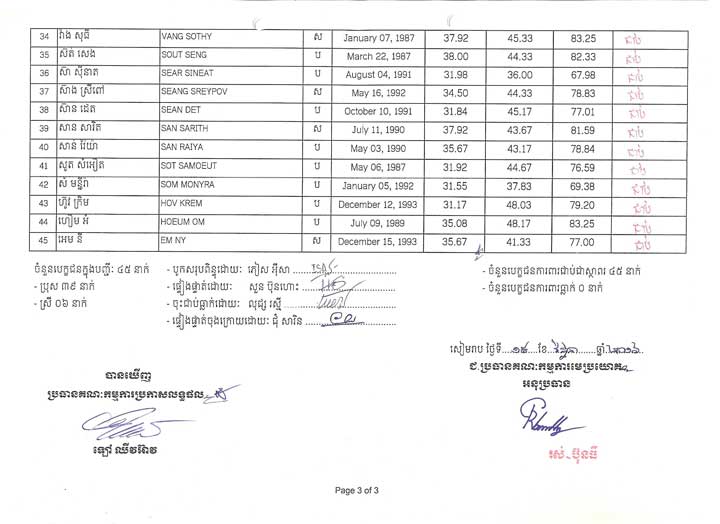 34 វ៉ាង សុធី VANG SOTHY ស January 07, 1987 37.92 45.33 83.25 ជាប់
35 ស៊ត សេង SOUT SENG ប March 22, 1987 38.00 44.33 82.33 ជាប់
36 ស៊ា ស៊ីនាត SEAR SINEAT ប August 04, 1991 31.98 36.00 67.98 ជាប់
37 ស៊ាង ស្រីពៅ SEANG SREYPOV ស May 16, 1992 34.50 44.33 78.83 ជាប់
38 ស៊ាន ដេត SEAN DET ប October 10, 1991 31.84 45.17 77.01 ជាប់
39 សាន សារិត SAN SARITH ស July 11, 1990 37.92 43.67 81.59 ជាប់
40 សាន់ រ៉ៃយ៉ា SAN RAIYA ប May 03, 1990 35.67 43.17 78.84 ជាប់
41 សូត សំអឿត SOT SAMOEUT ប May 06, 1987 31.92 44.67 76.59 ជាប់
42 សំ មន្នីរ៉ា SOM MONYRA ប January 05, 1992 31.55 37.83 69.38 ជាប់
43 ហ៊ូវ ក្រឹម HOV KREM ប December 12, 1993 31.17 48.03 79.20 ជាប់
44 ហឿម អំ HOEUM OM ប July 09, 1989 35.08 48.17 83.25 ជាប់
45 អេម នី EM NY ស December 15, 1993 35.67 41.33 77.00 ជាប់
ចំនួនបេក្ខជនក្នុងបញ្ជី: ៤៥ នាក់ - បូកសរុបពិន្ទុដោយ: ភឿស អ៊ីសា - ចំនួនបេក្ខជនការពារជាប់ជាស្ថាពរ ៤៥ នាក់
- ប្រុស ៣៩ នាក់ - ផ្ទៀងផ្ទាត់ដោយ: សួន ប៊ុនហោះ - ចំនួនបេក្ខជនការពារធ្លាក់ ០ នាក់
- ស្រី ០៦ នាក់ - ចុះជាប់ធ្លាក់ដោយ: លុជ្ជ រស្មី
- ផ្ទៀងផ្ទាត់ចុងក្រោយដោយ: ជុំ សារិន
សៀមរាប ថ្ងៃទី ខែ ឆ្នាំ
ជ.ប្រធានគណៈកម្មការមេប្រយោគ
អនុប្រធាន
បានឃើញ
ប្រធានគណៈកម្មការប្រកាសលទ្ធផល
រស់ ប៊ុនធី
ឡៅ ឈីវអ៊ាវ
Page 3 of 3